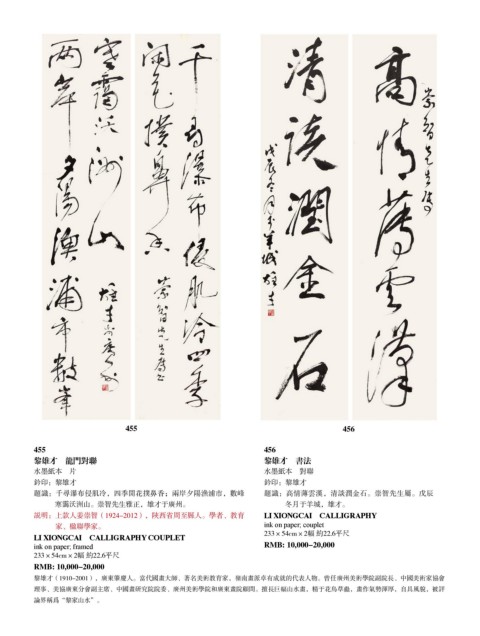 千尋瀑布侵肌冷四季
閑花撲鼻香
崇智先生雅正
兩岸夕陽漁浦市數峰
寒靄沃洲山
雄才於廣州
高情薄雲漢
崇智先生屬
清談潤金石
戊辰冬月于羊城雄才
455
456
455
黎雄才 龍門對聯
水墨紙本 片
鈐印：黎雄才
題識：千尋瀑布侵肌冷，四季閒花撲鼻香；兩岸夕陽漁浦市，數峰
寒靄沃洲山。崇智先生雅正，雄才于廣州。
說明：上款人姜崇智（1924-2012），陝西省周至縣人。學者、教育
家、楹聯學家。
LI XIONGCAI CALLIGRAPHY COUPLET
ink on paper; framed
233 × 54cm × 2幅 約22.6平尺
RMB: 10,000–20,000
456
黎雄才 書法
水墨紙本 對聯
鈐印：黎雄才
題識：高情薄雲漢，清談潤金石。崇智先生屬。戊辰
冬月于羊城，雄才。
LI XIONGCAI CALLIGRAPHY
ink on paper; couplet
233 × 54cm × 2幅 約22.6平尺
RMB: 10,000–20,000
黎雄才（1910–2001），廣東肇慶人。當代國畫大師、著名美術教育家，嶺南畫派卓有成就的代表人物。曾任廣州美術學院副院長、中國美術家協會
理事、美協廣東分會副主席、中國畫研究院院委、廣州美術學院和廣東畫院顧問。擅長巨幅山水畫，精于花鳥草蟲，畫作氣勢渾厚，自具風貌，被評
論界稱爲“黎家山水”。